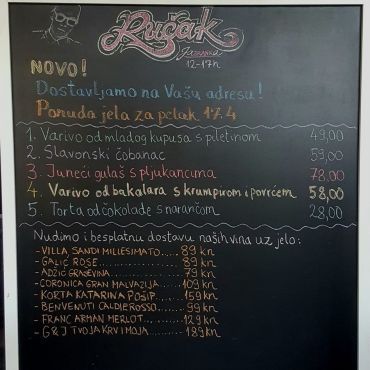 Ručak
JADRANKA
12-17h
NOVO!
Dostavljamo na Vašu adresu!
Ponuda jela za petak 17.4
1. Varivo od mladog kupusa s piletinom 49,00
2. Slavonski čobanac 59,00
3. Juneći gulaš s pljukancima 78,00
4. Varivo od bakalara s krumpirom i povrćem 58,00
5. Torta od čokolade s narančom 28,00
Nudimo i besplatnu dostavu naših vina uz jelo:
- VILLA SANDI MILLESIMATO..... 89 kn
- GALIĆ ROSE............ 89 kn
- ADŽIĆ GRAŠEVINA........ 79 kn
- CORONICA GRAN MALVAZIJA... 109 kn
- KORTA KATARINA POŠIP.... 159 kn
- BENVENUTI CALDIEROSSO... 99 kn
- FRANC ARMAN MERLOT..... 129 kn
- G&J TVOJA KRV I MOJA.... 189 kn